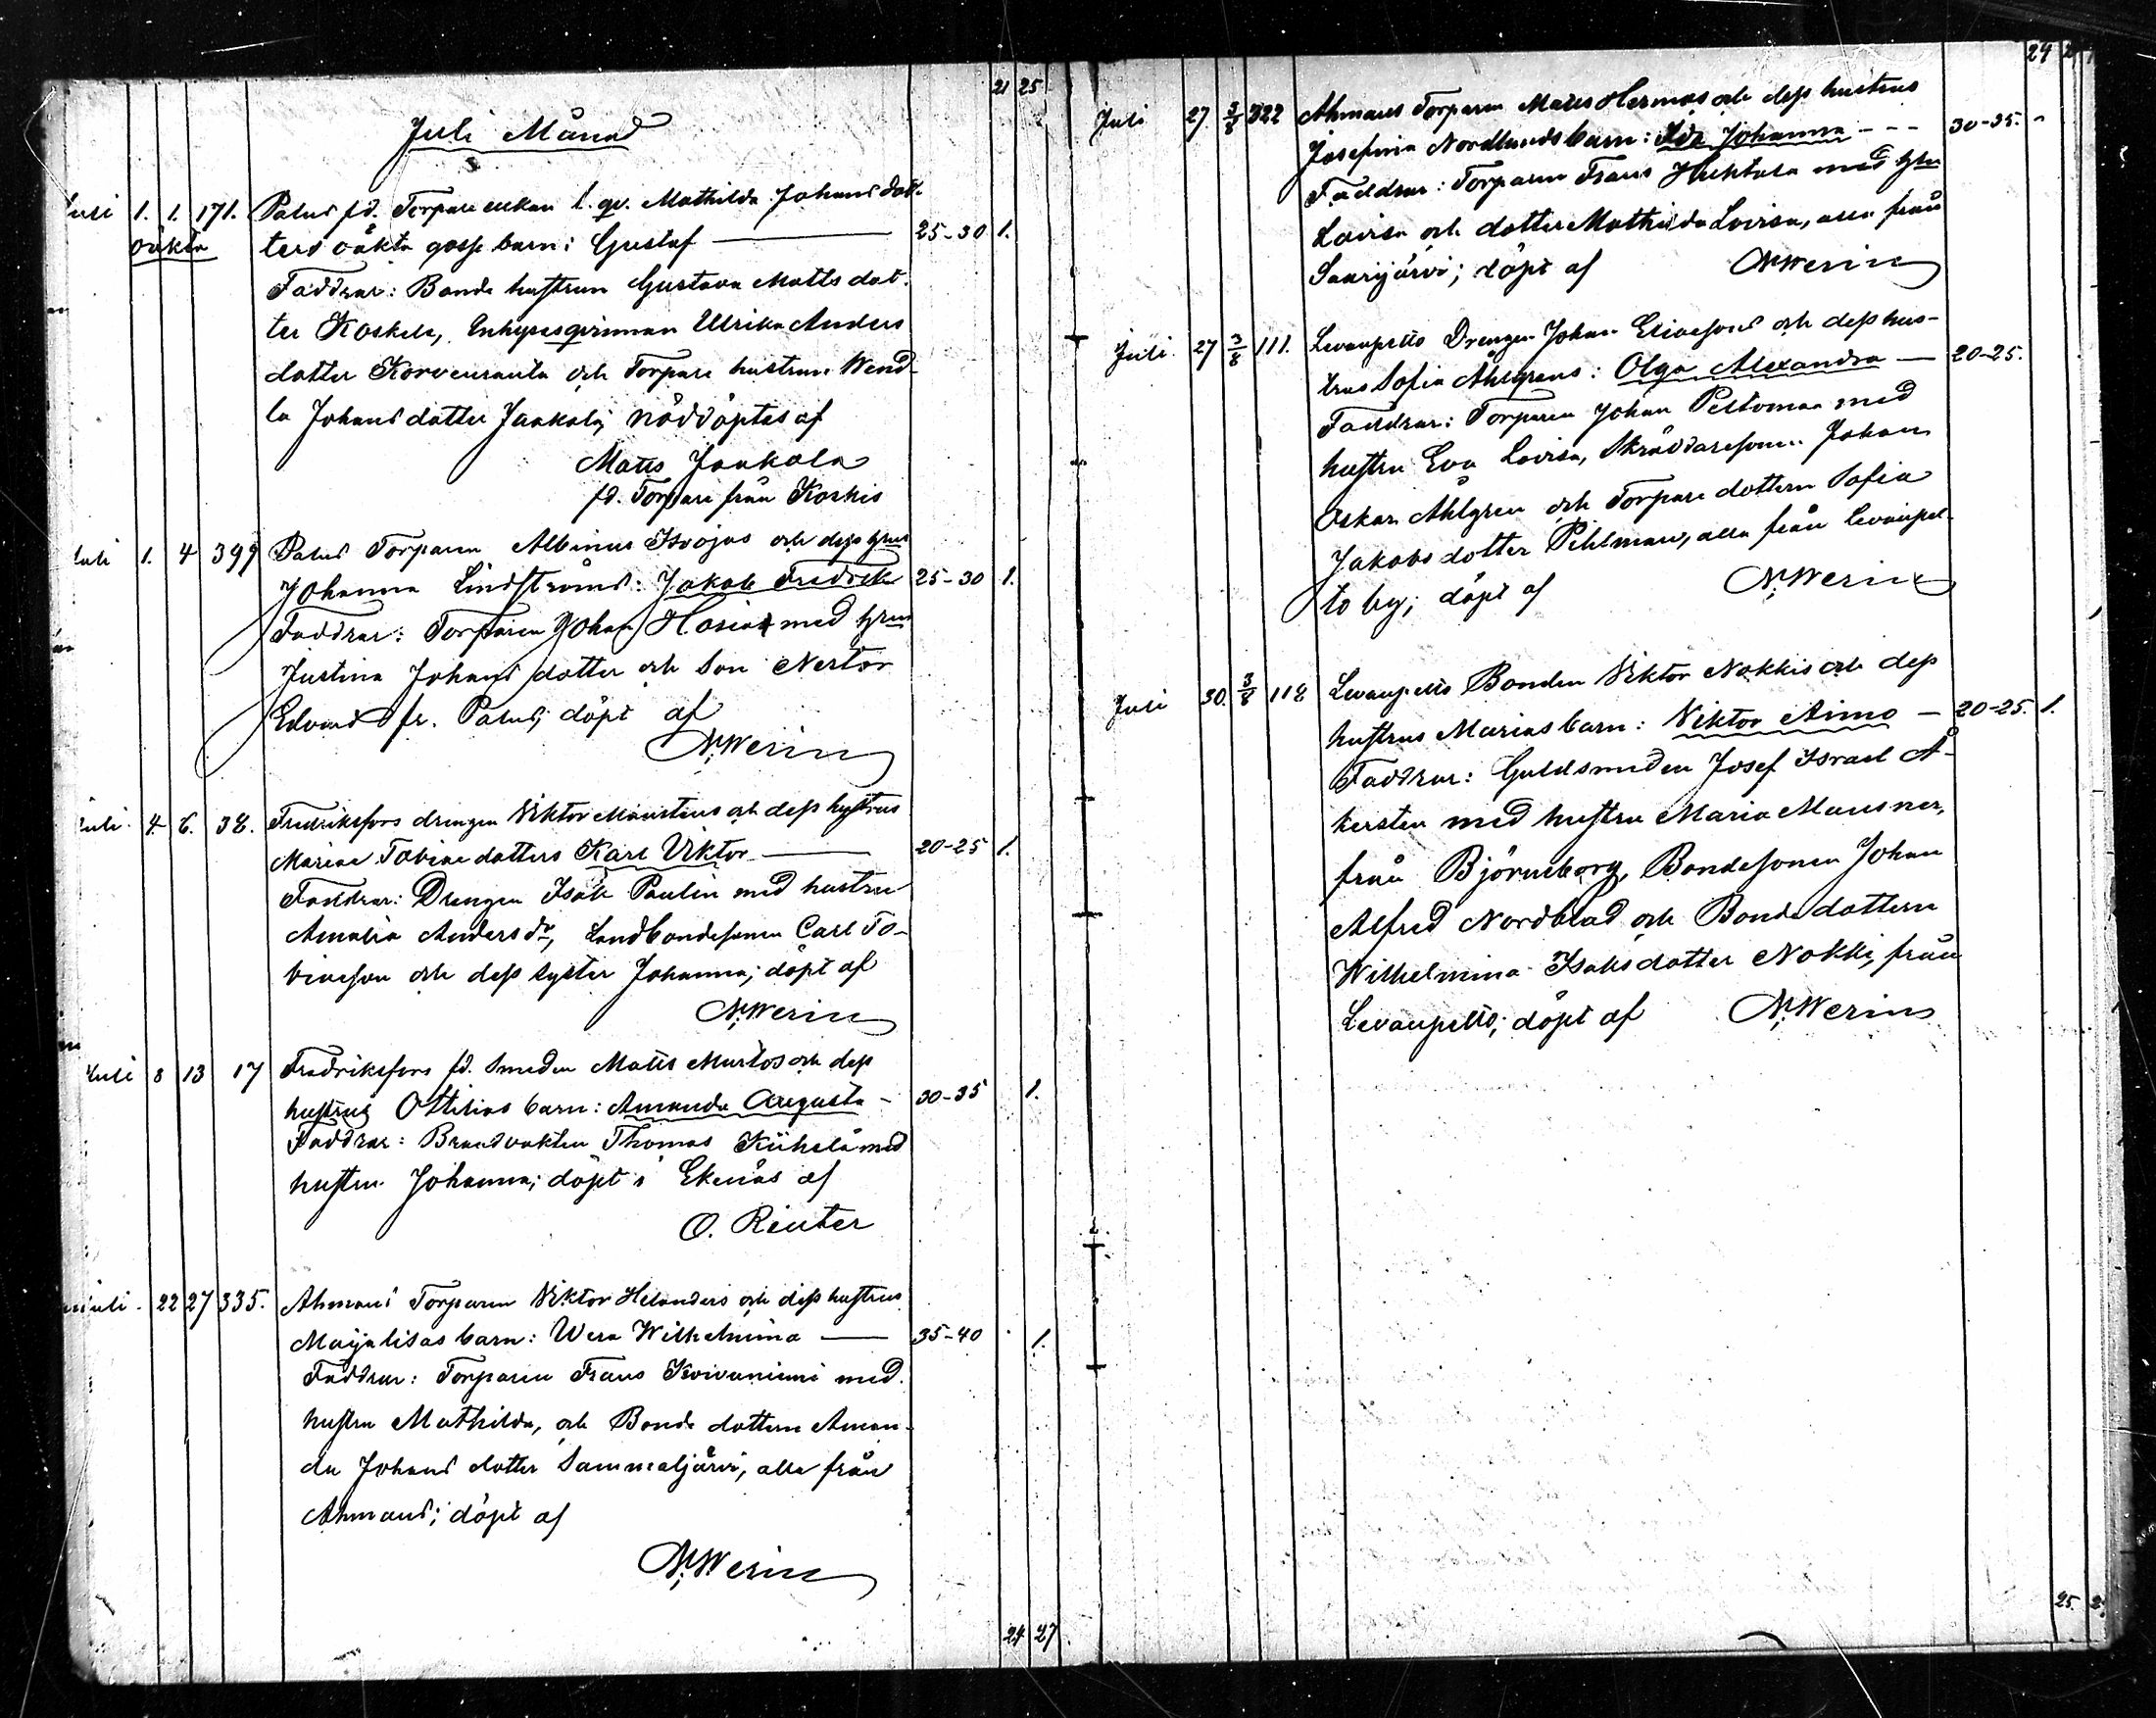 21 25
Juli Månad
Juli 1. 1. 171. Palus fd. Torpare enkan l. qv. Mathilda Johans dot-
oäkta ters oäkta gosse barn: Gustaf — 25-30 1.
Faddrar: Bonde hustrun Gustava Matts dot-
ter Koskela, Enhyses qvinnan Ulrika Anders
dotter Korvenranta och Torpare hustrun Wend-
la Johans dotter Jaakola; nöddöptes af
Matts Jaakola
fd. Torpare från Koskis
Juli 1. 4 399 Palus Torparen Albinus Isvojas och dess hrus
Johanna Lindströms: Jakob Fredrik 25-30 1.
Faddrar: Torparen Johan Hosia med hrun
Justina Johans dotter och Son Nestor
Edvard fr. Palus; döpt af
N. Werin
Juli 4 6. 38. Fredriksfors drengen Viktor Mourtens och dess hustrus
Marias Tobiæ dotters Karl Viktor — 20-25 1.
Faddrar: Drengen Isak Paulin med hustru
Amalia Anders dr, Landbondesonen Carl To-
biæson och dess syster Johanna; döpt af
N. Werin
Juli 8 13 17 Fredriksfors fd. Smeden Matts Murtos och dess
hustrus Ottilias barn: Amanda Augusta - 30-35 1.
Faddrar: Brandvakten Thomas Kühelä med
hustru Johanna; döpt i Ekenäs af
O. Reuter
Juli 22 27 335. Ahmaus Torparen Viktor Helanders och dess hustrus
Maijalisas barn: Wera Wilhelmina — 35-40 1.
Faddrar: Torparen Frans Koivuniemi med
hustru Mathilda, och Bonde dottern Aman-
da Johans dotter Sammaljärvi, alla från
Ahmaus; döpt af
N. Werin
24 27
24
Juli 27 3/8 322 Ahmaus Torparen Matts Hermas och dess hustrus
Josefina Nordlunds barn: Ida Johanna - - - 30-35.
Faddrar: Torparen Frans Huhtala med hru
Lovisa och dotter Mathilda Lovisa, alla från
Saarijärvi; döpt af N. Werin
Juli 27 3/8 111. Levanpelto Drengen Johan Eliæsons och dess hus-
trus Sofia Ahlgrens: Olga Alexandra — 20-25.
Faddrar: Torparen Johan Peltomaa med
hustru Eva Lovisa, Skräddaresonen Johan
Oskar Ahlgren och Torpare dottern Sofia
Jakobs dotter Pihlman, alla från Levanpel-
to by; döpt af N. Werin
Juli 30. 3/8 118 Levanpelto Bonden Viktor Nokkis och dess
hustrus Marias barn: Viktor Aimo — 20-25. 1.
Faddrar: Guldsmeden Josef Israel Å-
kersten med hustru Maria Mausner,
från Björneborg, Bondesonen Johan
Alfred Nordblad och Bonde dottern
Wilhelmina Isaks dotter Nokki, från
Levanpelto; döpt af N. Werin
25.